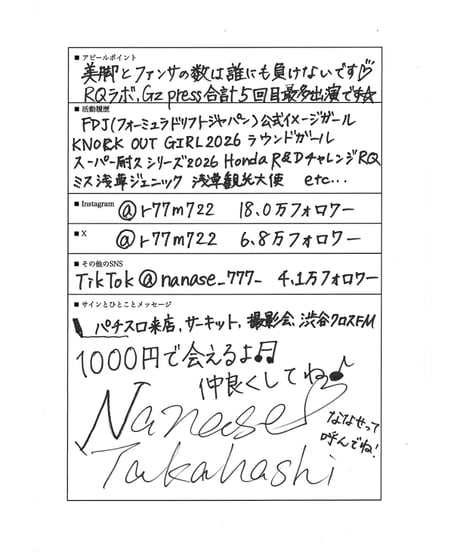 ■ アピールポイント
美脚とファンサの数は誰にも負けないです♡
RQラボ,Gz press合計5回目最多出演です☆
■ 活動履歴
FDJ(フォーミュラドリフトジャパン)公式イメージガール
KNOCK OUT GIRL2026 ラウンドガール
スーパー耐久シリーズ2026 Honda R&DチャレンジRQ
ミス浅草ジェニック 浅草観光大使 etc...
■ Instagram @r77m722 18.0万フォロワー
■ X @r77m722 6.8万フォロワー
■ その他のSNS
TikTok@nanase_777_ 4.1万フォロワー
■ サインとひとことメッセージ
パチスロ来店,サーキット,撮影会,渋谷クロスFM
1000円で会えるよ♫
仲良くしてね♪
Nanase♡
Takahashi
ななせって
呼んでね!